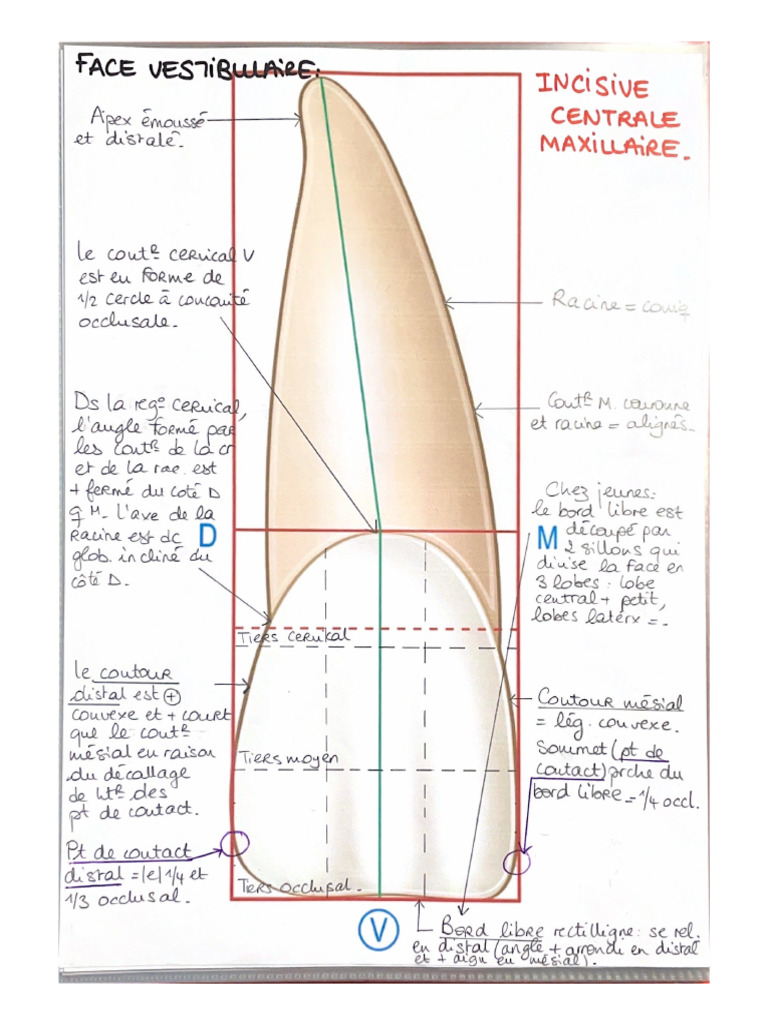 FACE VESTIBULAIRE.
INCISIVE
CENTRALE
MAXILLAIRE.
Apex émoussé
et distalé.
le contʳ cervical V
est en forme de
1/2 cercle à concavité
occlusale.
Racine = coniq
Ds la régᵒ cervical,
l'angle formé par
les contʳ de la cr
et de la rac. est
+ fermé du coté D
q M. l'axe de la
Racine est dc
glob. incliné du
côté D.
D
Contʳ M. couronne
et racine = alignés.
Chez jeunes:
le bord libre est
M
découpé par
2 sillons qui
divise la face en
3 lobes : lobe
central + petit,
lobes latérx =.
Tiers cervical
le contour
distal est ⊕
convexe et + court
que le contʳ
mésial en raison
du décallage
de htʳ des
pt de contact.
Contour mésial
= lég. convexe.
Sommet (pt de
contact) prche du
bord libre = 1/4 occl.
Tiers moyen
Pt de contact
distal = |e| 1/4 et
1/3 occlusal.
Tiers occlusal.
V
Bord libre rectilligne : se rel.
en distal (angle + arrondi en distal
et + aigu en mésial).